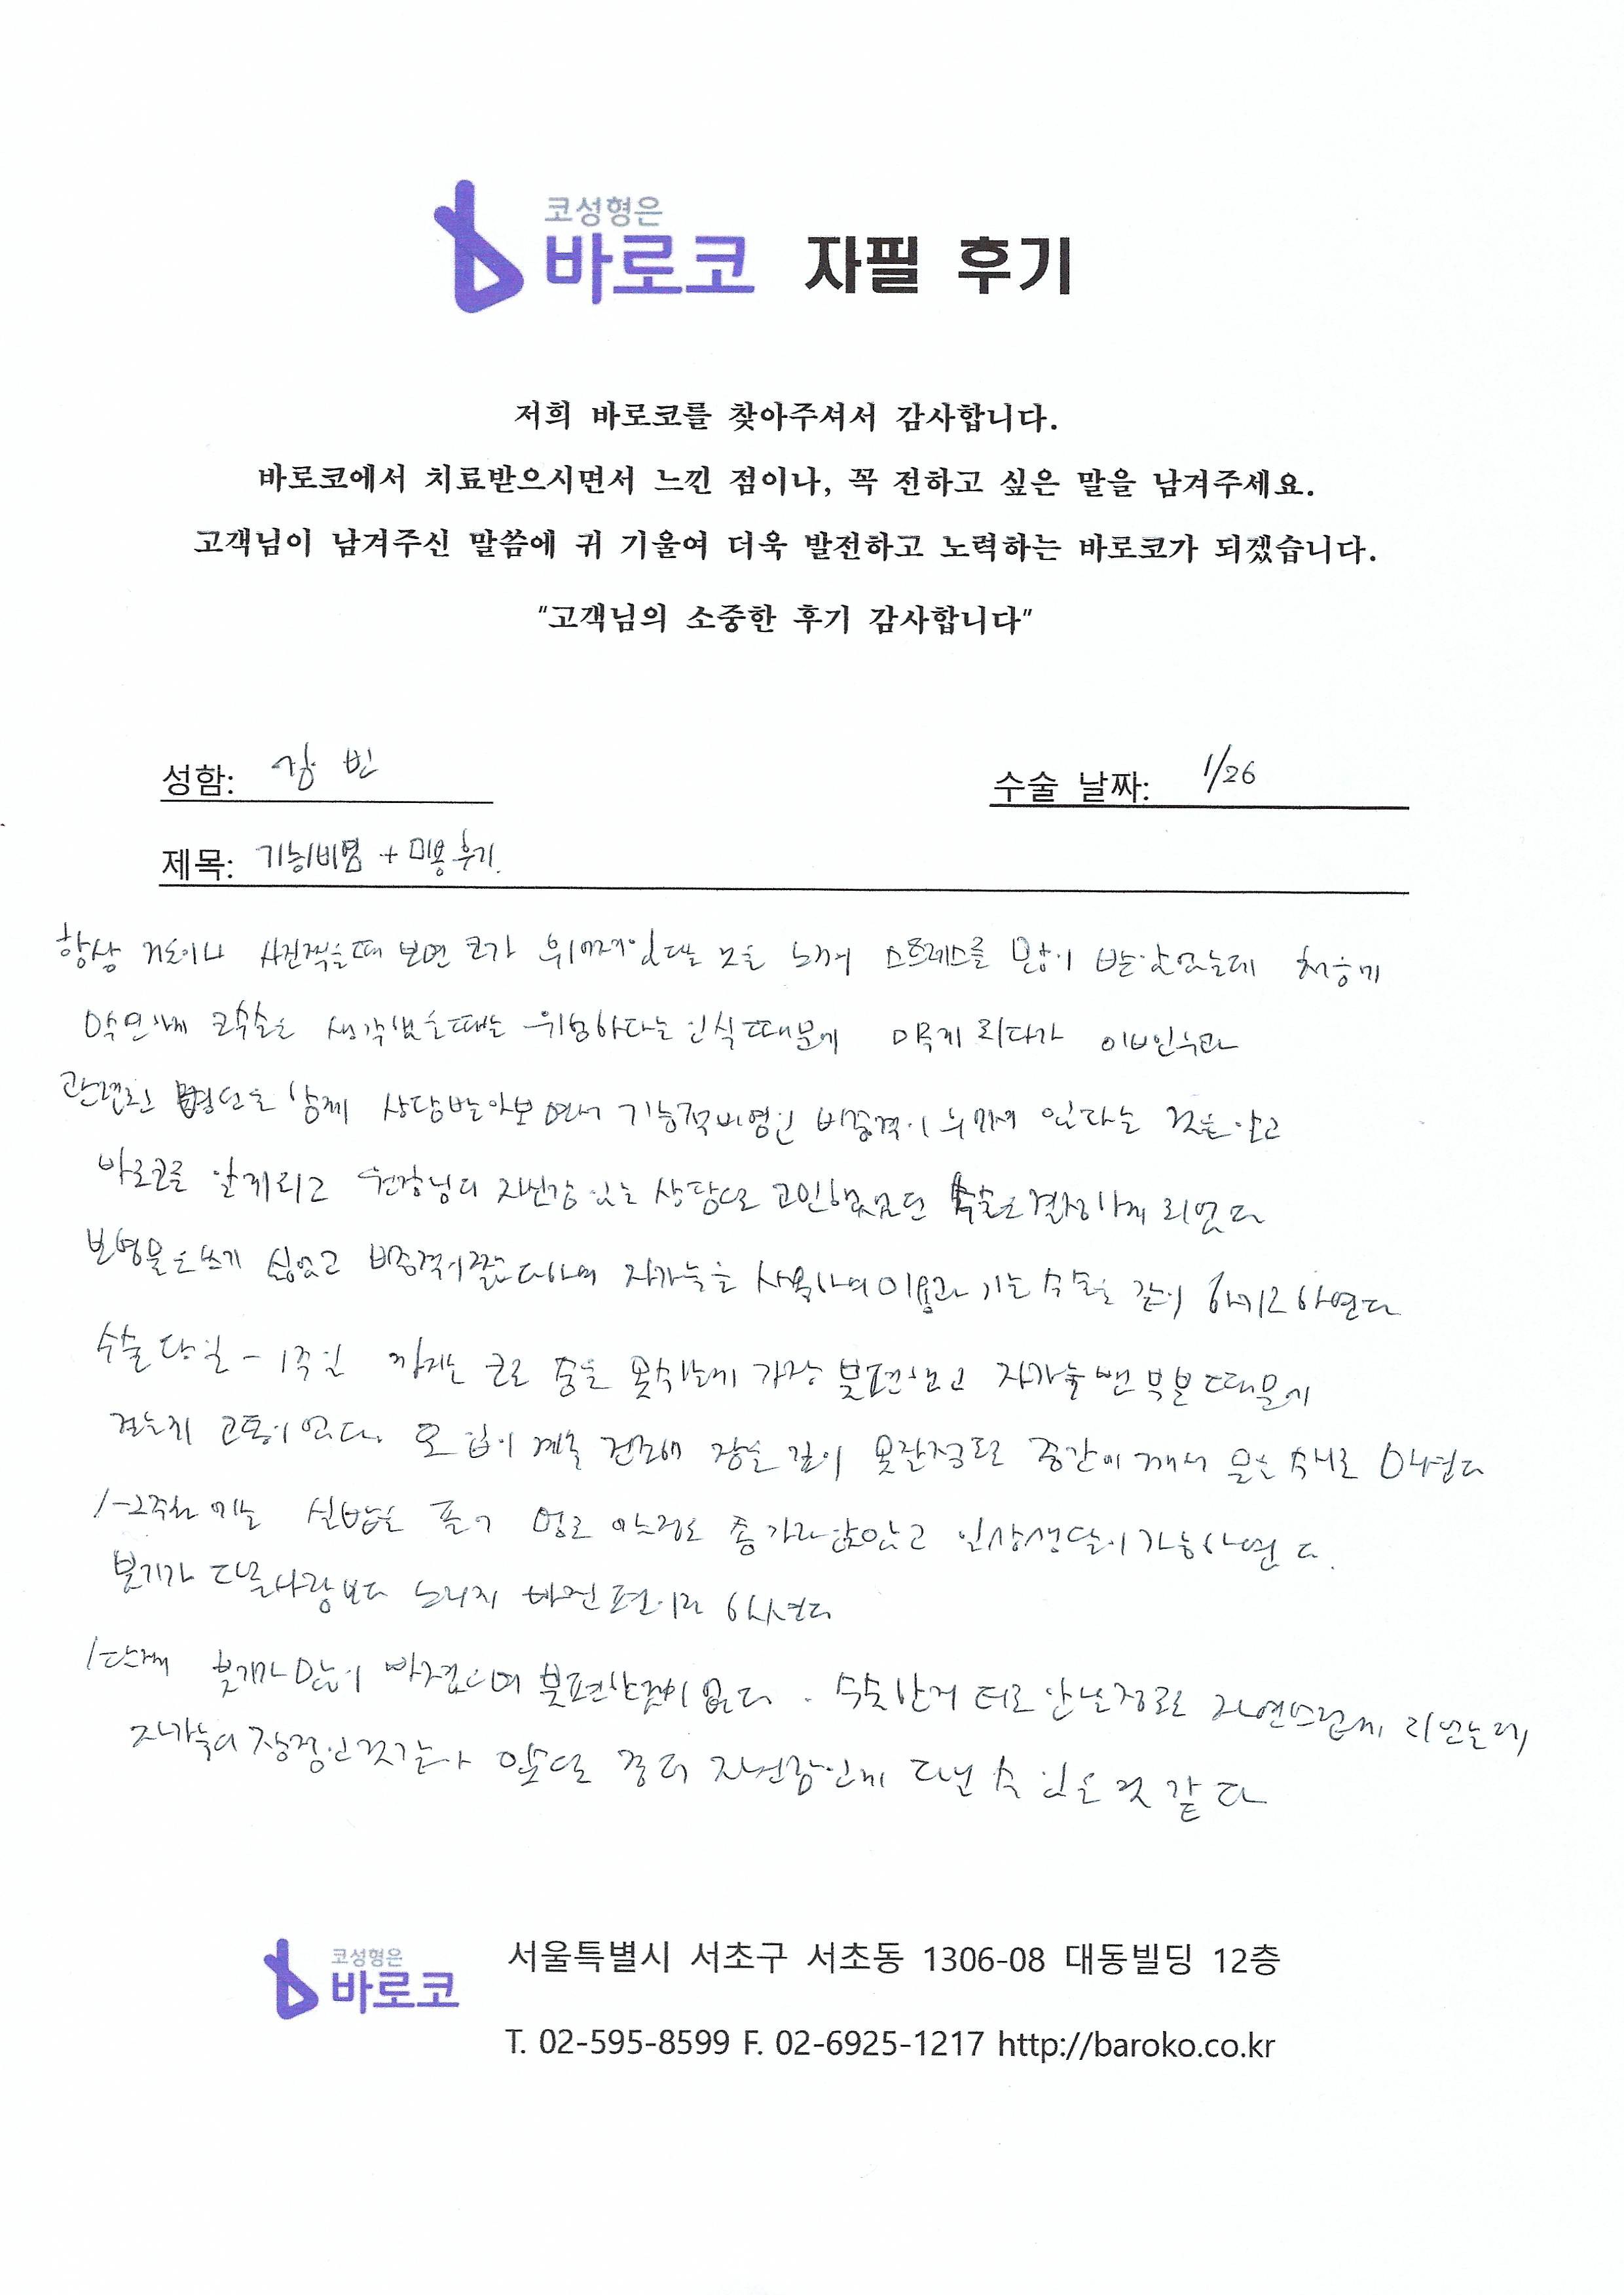 코성형은
바로코 자필 후기
저희 바로코를 찾아주셔서 감사합니다.
바로코에서 치료받으시면서 느낀 점이나, 꼭 전하고 싶은 말을 남겨주세요.
고객님이 남겨주신 말씀에 귀 기울여 더욱 발전하고 노력하는 바로코가 되겠습니다.
"고객님의 소중한 후기 감사합니다"
성함: 강 빈 수술 날짜: 1/26
제목: 기능비염 + 미용 후기.
항상 거울이나 사진찍을때 보면 코가 휘어져있다는 것을 느껴 스트레스를 많이 받았었는데 처음에
막연하게 코수술을 생각했을때는 위험하다는 인식때문에 이비인후과
관련된 상담받아보면서 기능적비염인 비중격이 휘어져 있다는 것을 알고
바로코를 알게되고 원장님의 자신감 있는 상담으로 고민했었던 수술을 결정하게 되었다
보형물을 쓰기 싫었고 비중격이 짧다하여 자가늑을 사용하여 미용과 기능 수술을 같이 하기로 하였다
수술 당일 - 1주일 까지는 코로 숨을 못쉬는게 가장 불편했고 자가늑 뺀 부분 때문에
걷는게 고통이었다. 또 입이 계속 건조해 잠을 깊이 못잘정도로 중간에 깨서 물을 수시로 마셨다
1-2주차 에는 실밥을 풀어 멍도 어느정도 좋아졌고 일상생활이 가능하였다.
붓기가 다른사람보다 느리게 빠진 편이라 하셨다
1달째 붓기가 많이 빠졌으며 불편한것이 없다. 수술한거 티도 안날정도로 자연스럽게 되었는데
자가늑의 장점인것같아 앞으로 좀 더 자신감있게 다닐 수 있을 것 같다
코성형은
바로코
서울특별시 서초구 서초동 1306-08 대동빌딩 12층
T. 02-595-8599 F. 02-6925-1217 http://baroko.co.kr